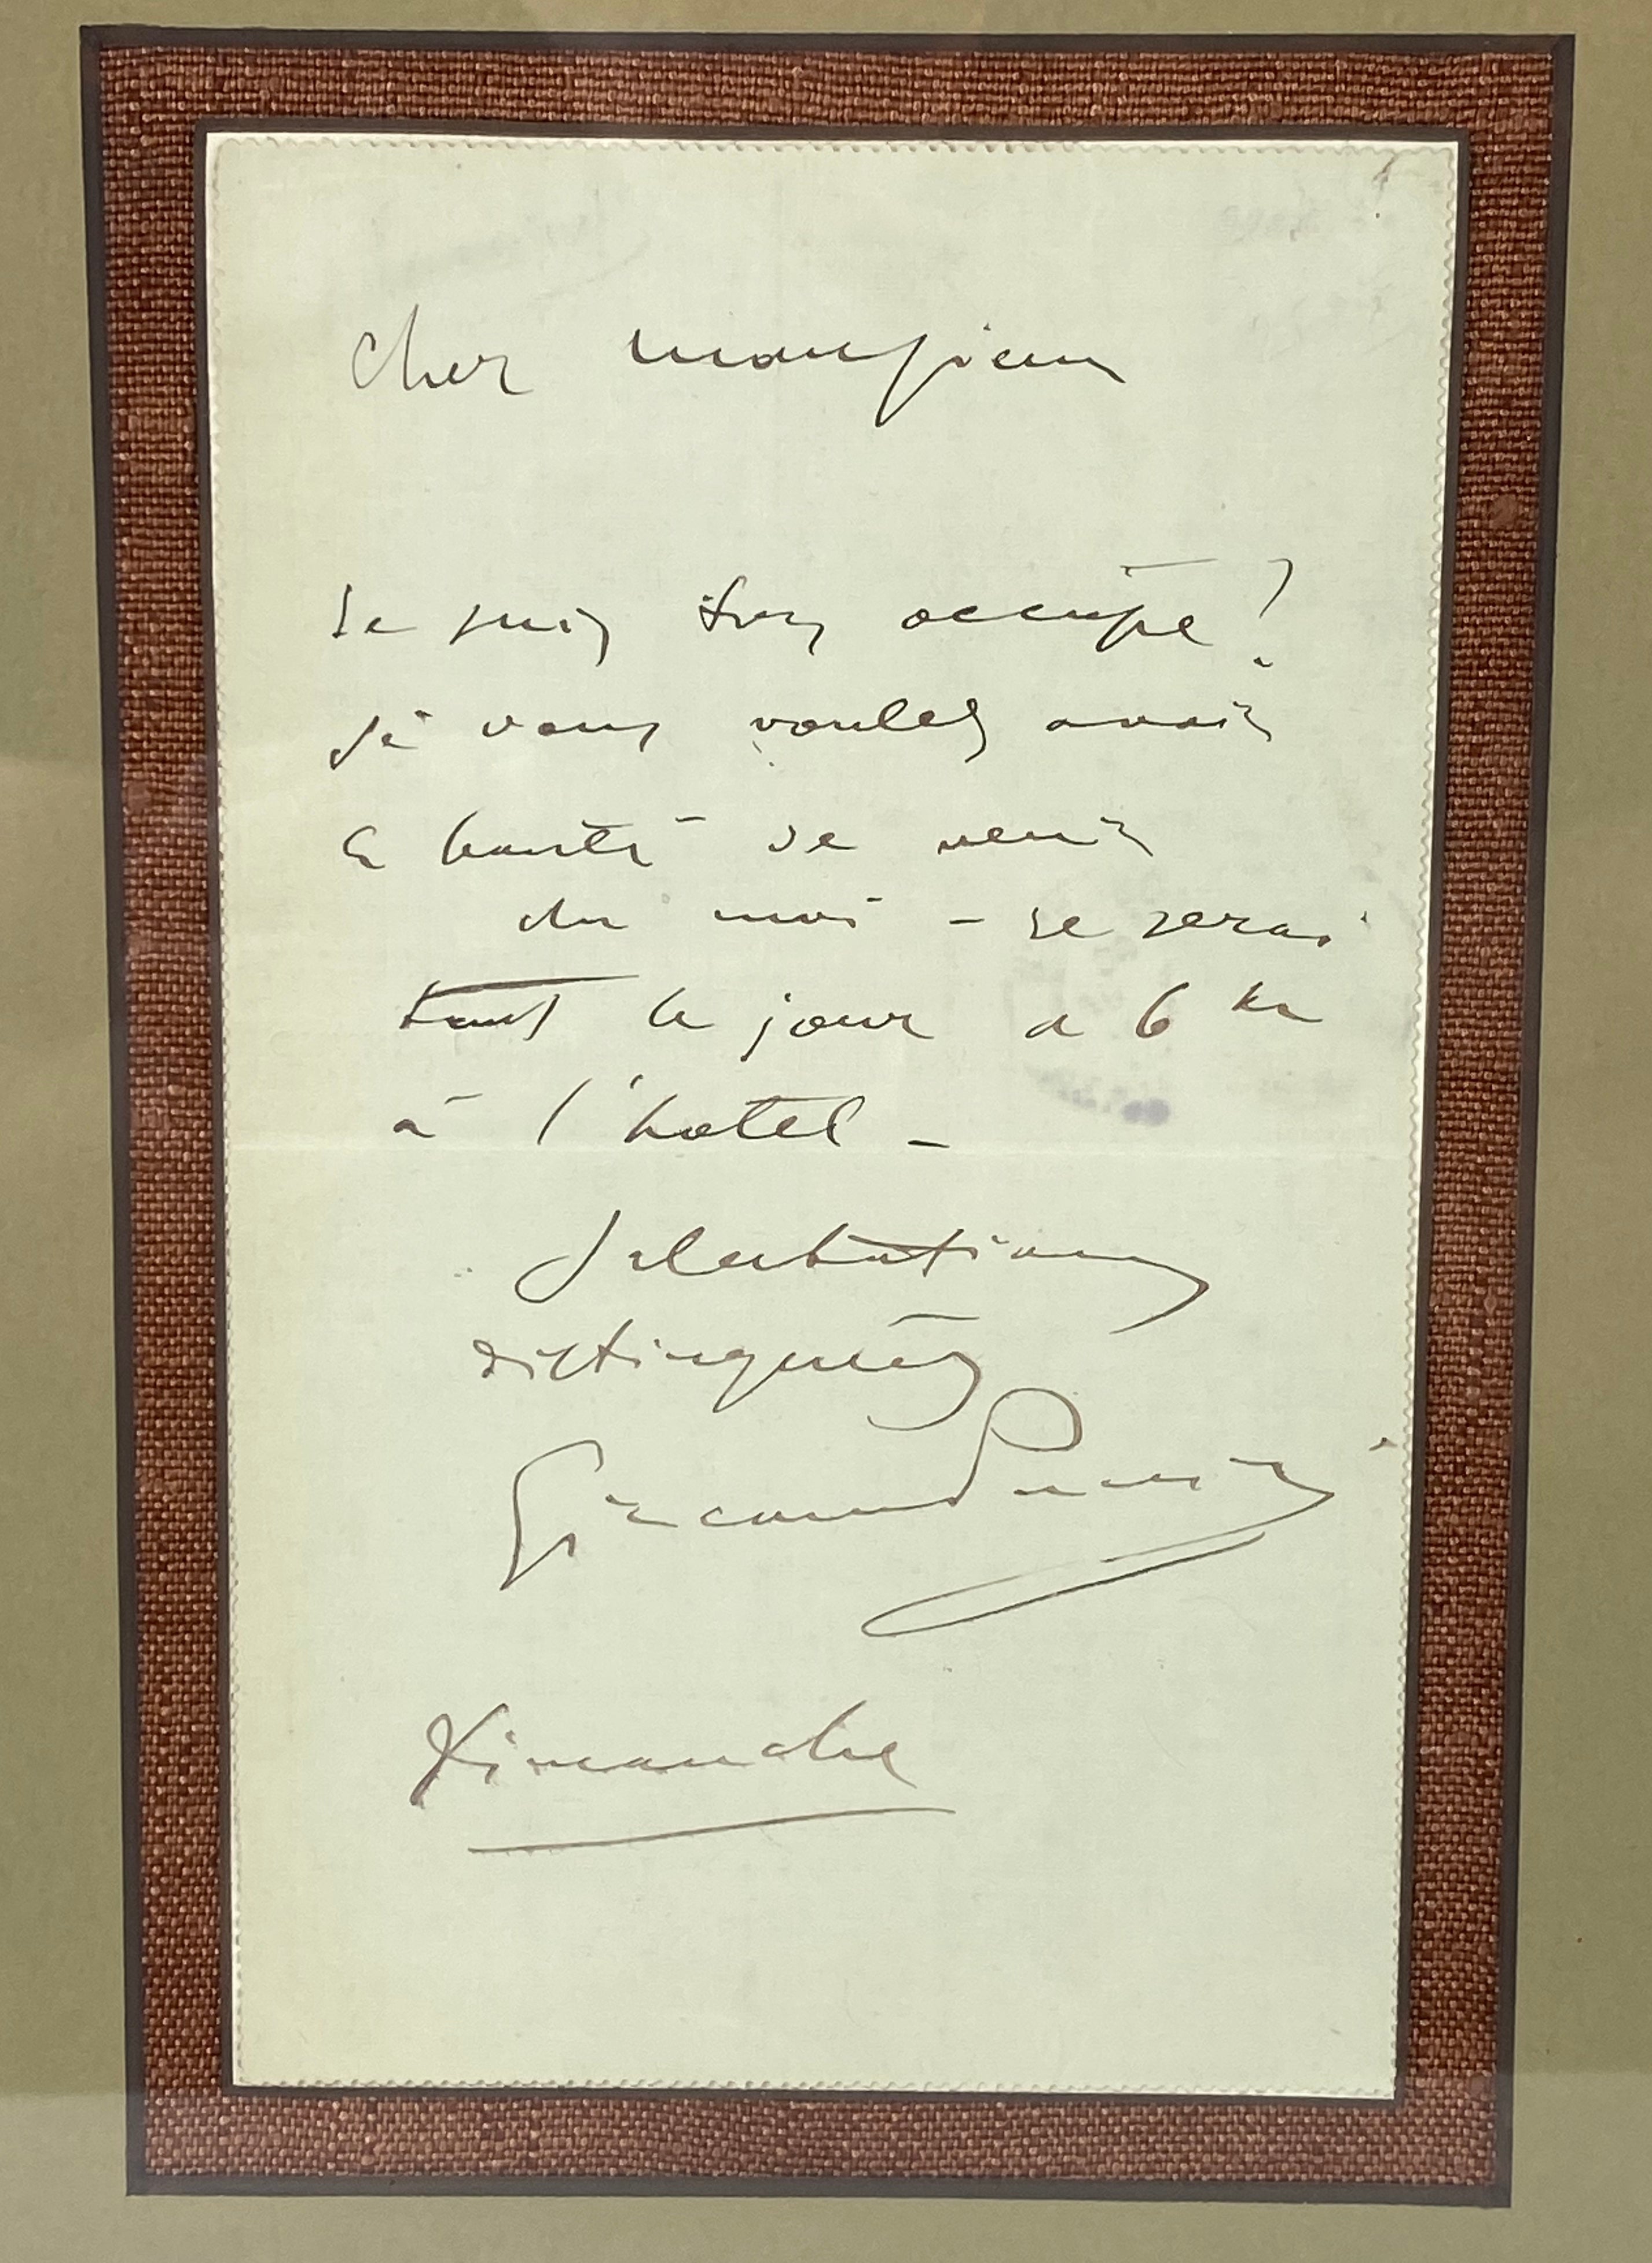 Cher Monsieur
Je suis très occupé!
Si vous voulez avoir
la bonté de venir
chez moi – je serai
tout le jour a 6 hr
à l'hotel –
Salutations
distinguées
Giacomo Puccini
Dimanche